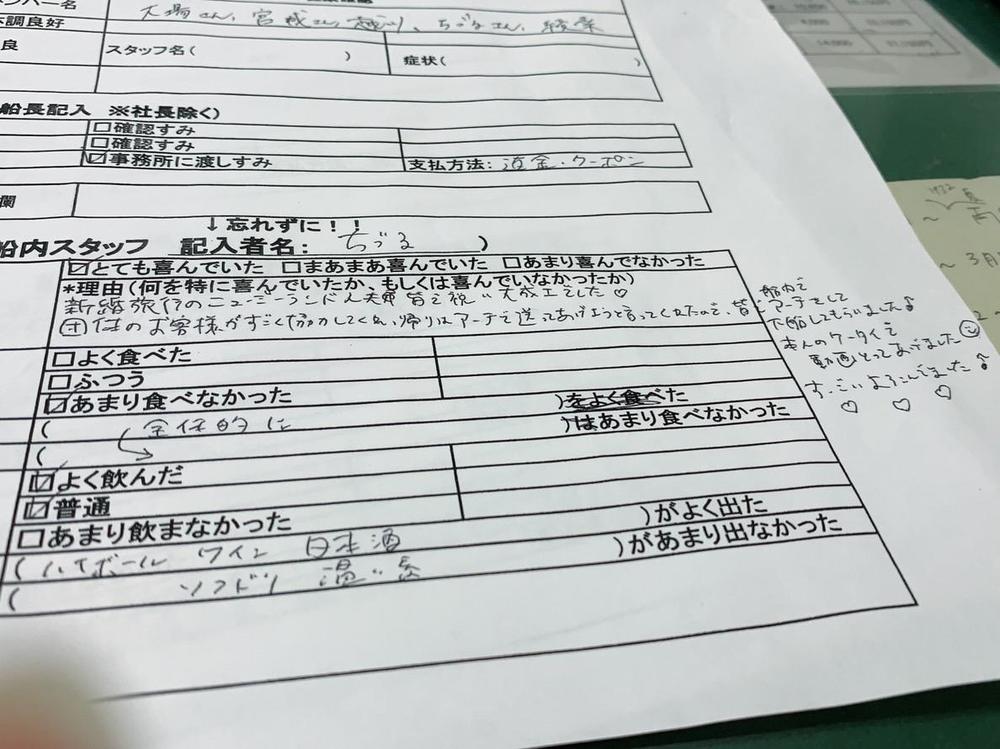 ンバー名
大場さん、宮城さん、越川、ちづるさん、
体調良好
良 スタッフ名( ) 症状( )
船長記入 ※社長除く)
□確認すみ
□確認すみ
☑事務所に渡しすみ 支払方法: 送金・クーポン
欄
↓忘れずに!!
船内スタッフ 記入者名: ちづる )
☑とても喜んでいた □まあまあ喜んでいた □あまり喜んでなかった
*理由(何を特に喜んでいたか、もしくは喜んでいなかったか)
新婚旅行のニュージーランド人夫婦 皆で祝い 大成功でした♡
他のお客様がすごく協力してくれ、帰りはアーチで送ってあげようと言ってくれたので、皆で
船内で
アーチをして
下船してもらいました♪
本人のケータイで
動画とってあげました☺
すっごいよろこんでました♪
♡ ♡ ♡
□よく食べた
□ふつう
☑あまり食べなかった )をよく食べた
( 全体的に )はあまり食べなかった
(
☑よく飲んだ
☑普通
□あまり飲まなかった )がよく出た
( ハイボール ワイン 日本酒 )があまり出なかった
( ソフドリ